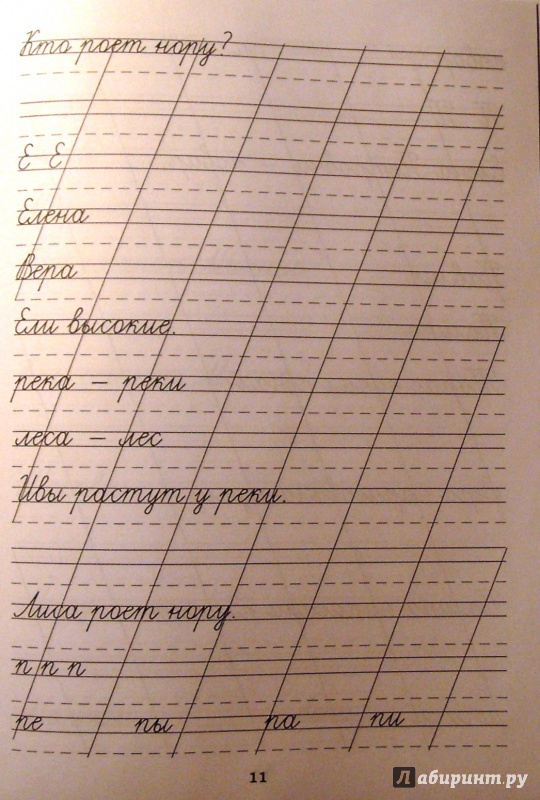 Кто роет нору?
Е Е
Елена
Вера
Ели высокие.
река – реки
леса – лес
Ивы растут у реки.
Лиса роет нору.
п п п
пе пы па пи
11
Лабиринт.ру